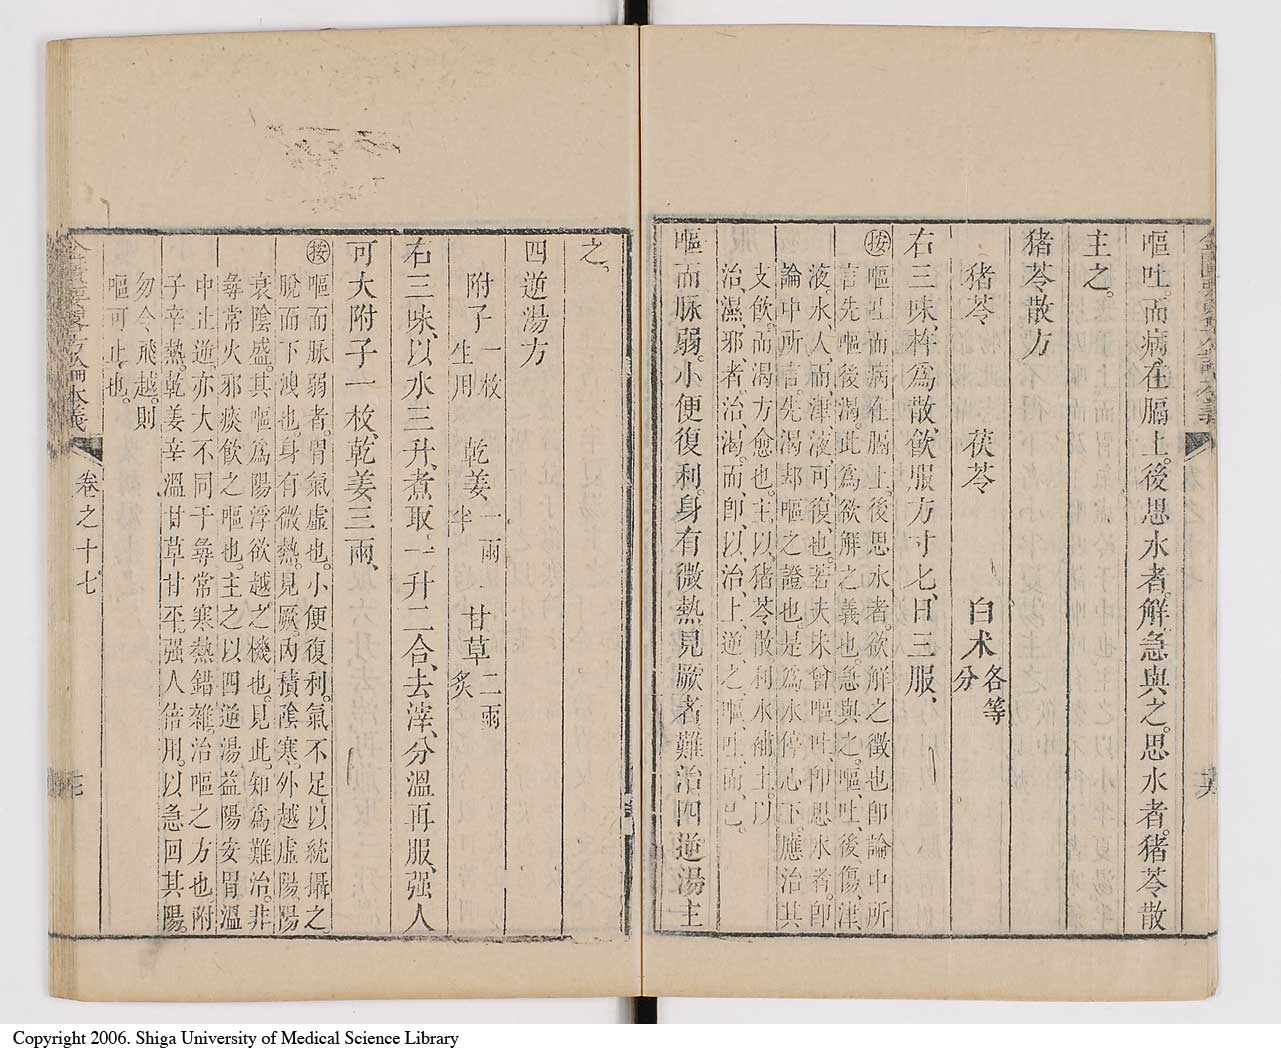 嘔吐。而病在膈上。後思水者。解。急與之。思水者。豬苓散
主之。
豬苓散方
豬苓 茯苓 白术各等分
右三味、杵爲散、飲服方寸匕、日三服、
按嘔吐而病在膈上。後思水者。欲解之徵也卽論中所
言先嘔後渴。此爲欲解之義也。急與之。嘔吐、後傷、津
液水、入、而、津、液可、復、也。若夫未曾嘔吐、卽思水者。卽
論中所言。先渴却嘔之證也是爲水停心下。應治其
支飲。而渴方愈也。主以豬苓散利水補土以
治濕、邪、者、治、渴。而、卽、以、治、上逆之、嘔、吐、而、已。
嘔而脉弱。小便復利。身有微熱。見厥者難治四逆湯主
之。
四逆湯方
附子一枚生用 乾姜一兩半 甘草二兩炙
右三味、以水三升、煮取一升二合、去滓、分溫再服、强人
可大附子一枚、乾姜三兩、
按嘔而脉弱者。胃氣虛也。小便復利。氣不足以統攝之
脫而下洩也。身有微熱。見厥。內積陰寒。外越虛陽。陽
衰陰盛。其嘔爲陽浮欲越之機也。見此。知爲難治。非
尋常火邪痰飲之嘔也。主之以四逆湯益陽安胃溫
中止逆。亦大不同于尋常寒熱錯雜。治嘔之方也附
子辛熱。乾姜辛溫。甘草甘平。强人倍用。以急回其陽。
勿令飛越。則
嘔可止也。
卷之十七
Copyright 2006. Shiga University of Medical Science Library